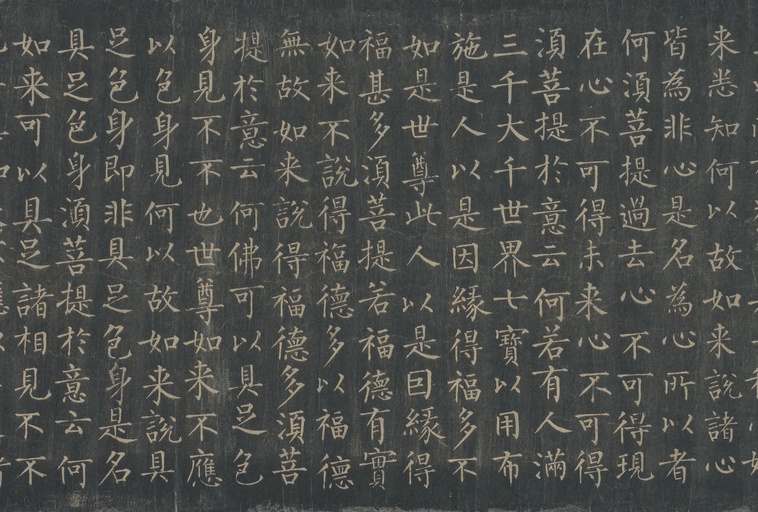 来悉知何以故如来說諸心
皆為非心是名為心所以者
何湏菩提過去心不可得現
在心不可得未来心不可得
湏菩提於意云何若有人滿
三千大千世界七寶以用布
施是人以是因緣得福多不
如是世尊此人以是因緣得
福甚多湏菩提若福德有實
如来不說得福德多以福德
無故如来說得福德多湏菩
提於意云何佛可以具足色
身見不不也世尊如来不應
以色身見何以故如来說具
足色身即非具足色身是名
具足色身湏菩提於意云何
如来可以具足諸相見不不